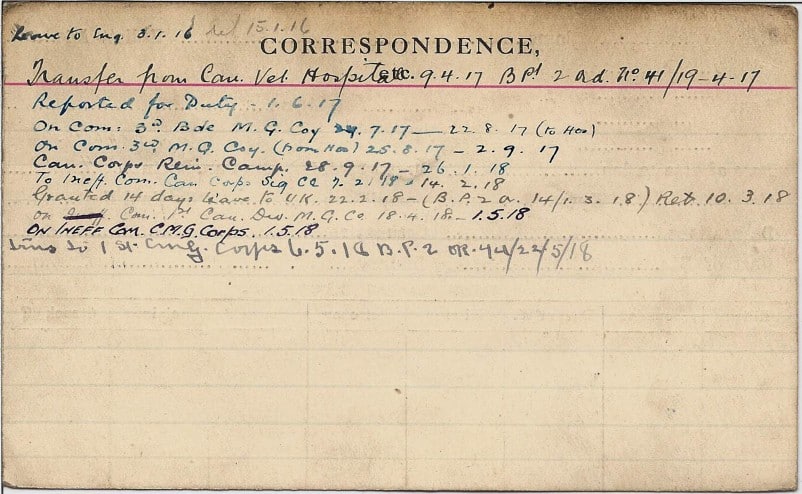 Leave to Eng. 3.1.16 Ret 15.1.16
CORRESPONDENCE, etc.
Transfer from Can. Vet. Hospital 9.4.17 B Pt 2 Ord. No 41/19-4-17
Reported for Duty - 1.6.17
On Com: 3rd Bde M. G. Coy 7.17 — 22.8.17 (to Hos)
On Com. 3rd M. G. Coy. (from Hos) 25.8.17 - 2.9.17
Can. Corps Rein. Camp. 28.9.17 - 26.1.18
To Ineff. Com. Can Corps Sig Ce 7.2.18 - 14.2.18
Granted 14 days leave to U.K. 22.2.18 - (B.P. 2 O. 14/1.3.18.) Ret. 10.3.18
on Com. 1st Can. Div. M. G. Co 18.4.18 - 1.5.18
ON INEFF COM. C.M.G. CORPS. 1.5.18
to 1st C.M.G. Corps 6.5.18 B.P. 2 OR. 44/22/5/18